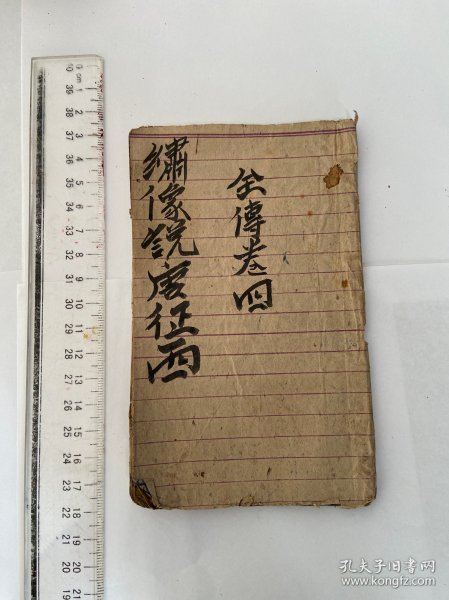 繡像說唐征西
全傳卷四
孔夫子旧书网
www.kongfz.com